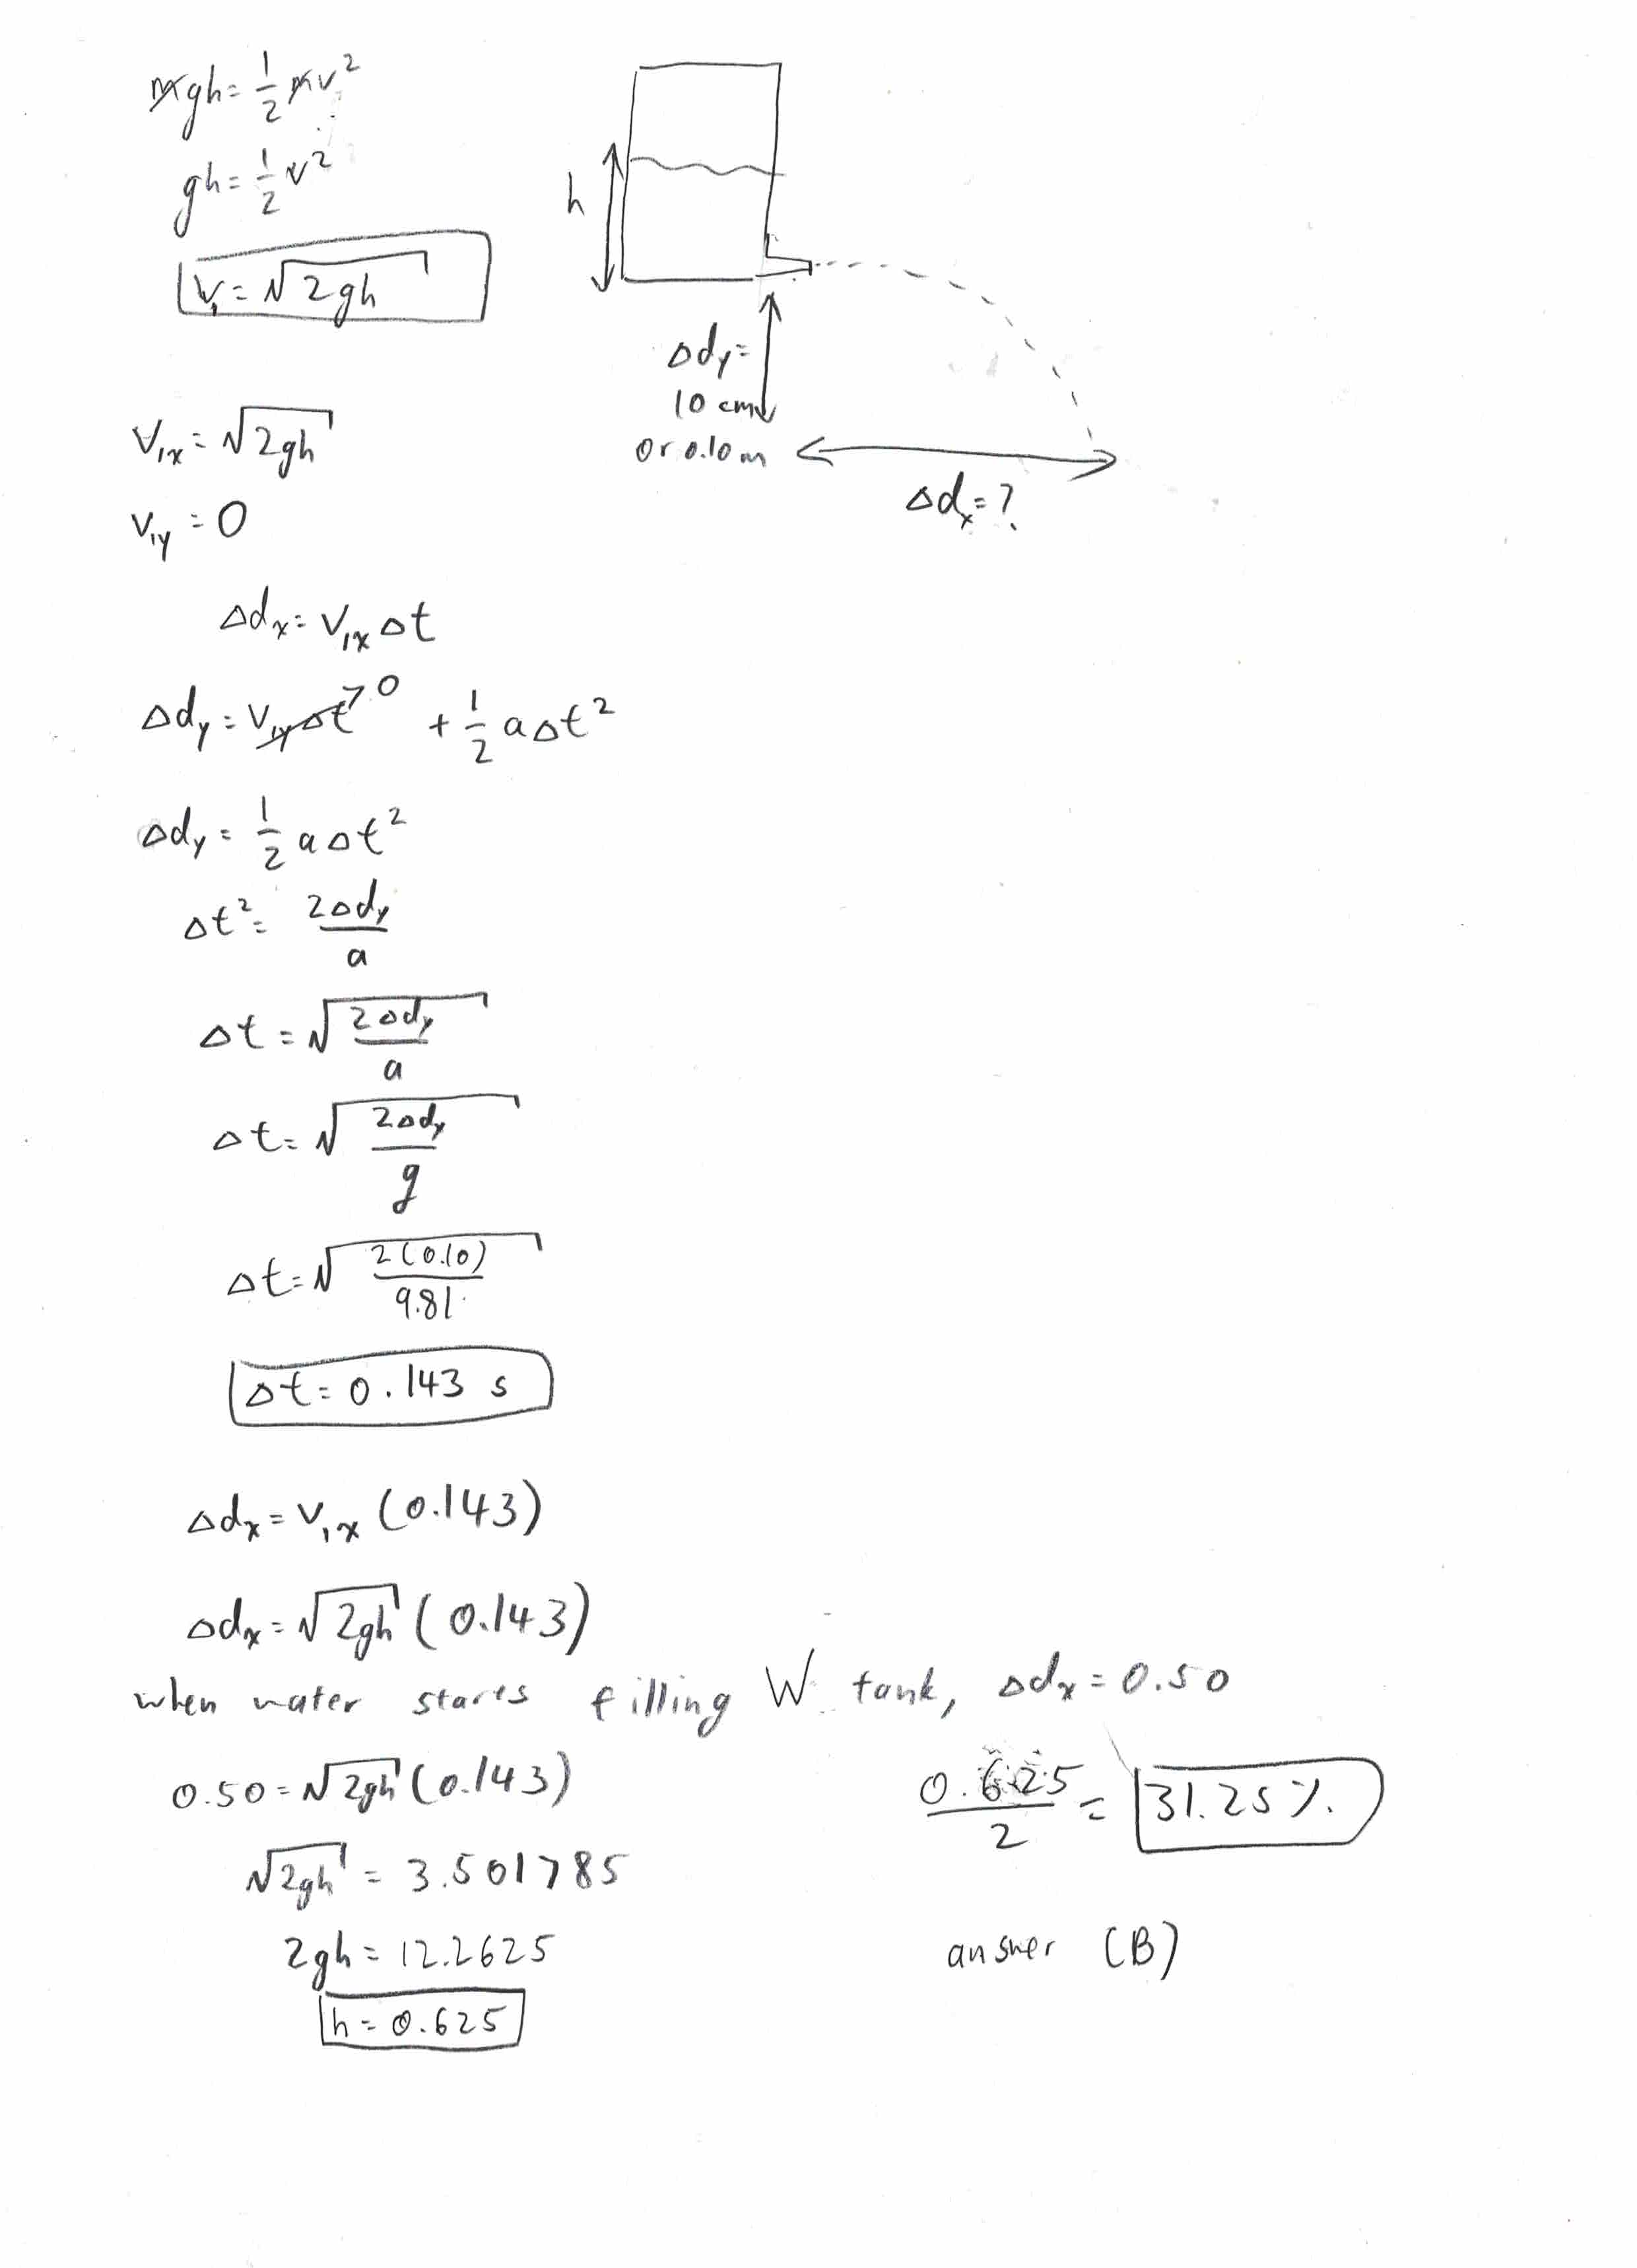 mgh = 1/2 mv²
gh = 1/2 v²
v₁ = √2gh
h
Δdy =
10 cm
or 0.10 m
Δdx = ?
V₁x = √2gh
V₁y = 0
Δdx = V₁x Δt
Δdy = V₁yΔt → 0 + 1/2 aΔt²
Δdy = 1/2 aΔt²
Δt² = 2Δdy / a
Δt = √(2Δdy / a)
Δt = √(2Δdy / g)
Δt = √(2(0.10) / 9.81)
Δt = 0.143 s
Δdx = V₁x (0.143)
Δdx = √2gh (0.143)
when water starts filling W tank, Δdx = 0.50
0.50 = √2gh (0.143)
√2gh = 3.501785
2gh = 12.2625
h = 0.625
0.625 / 2 = 31.25 %
answer (B)